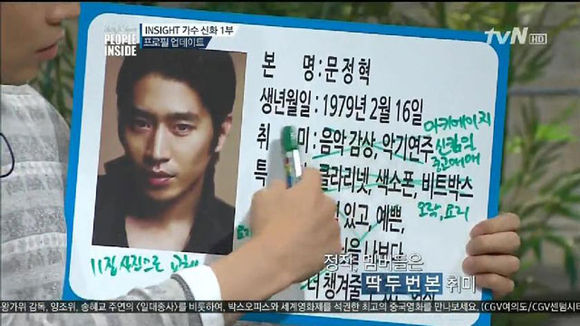 PEOPLE INSIDE
INSIGHT 가수 신화 1부
프로필 업데이트
tvN HD
본 명 : 문정혁
생년월일 : 1979년 2월 16일
아키에이지
취 미 : 음악 감상, 악기연주
신람일
중고매매
특 클라리넷, 색소폰, 비트박스
오락, 요리
있고, 예쁜,
11집 사진으로 교체
정작, 멤버들은
딱 두 번 본 취미
더 챙겨주
왕가위 감독, 양조위, 송혜교 주연의 <일대종사>를 비롯하여, 박스오피스와 세계영화제를 석권한 최고의 중국영화를 만나보세요. (CGV여의도/CGV센텀시